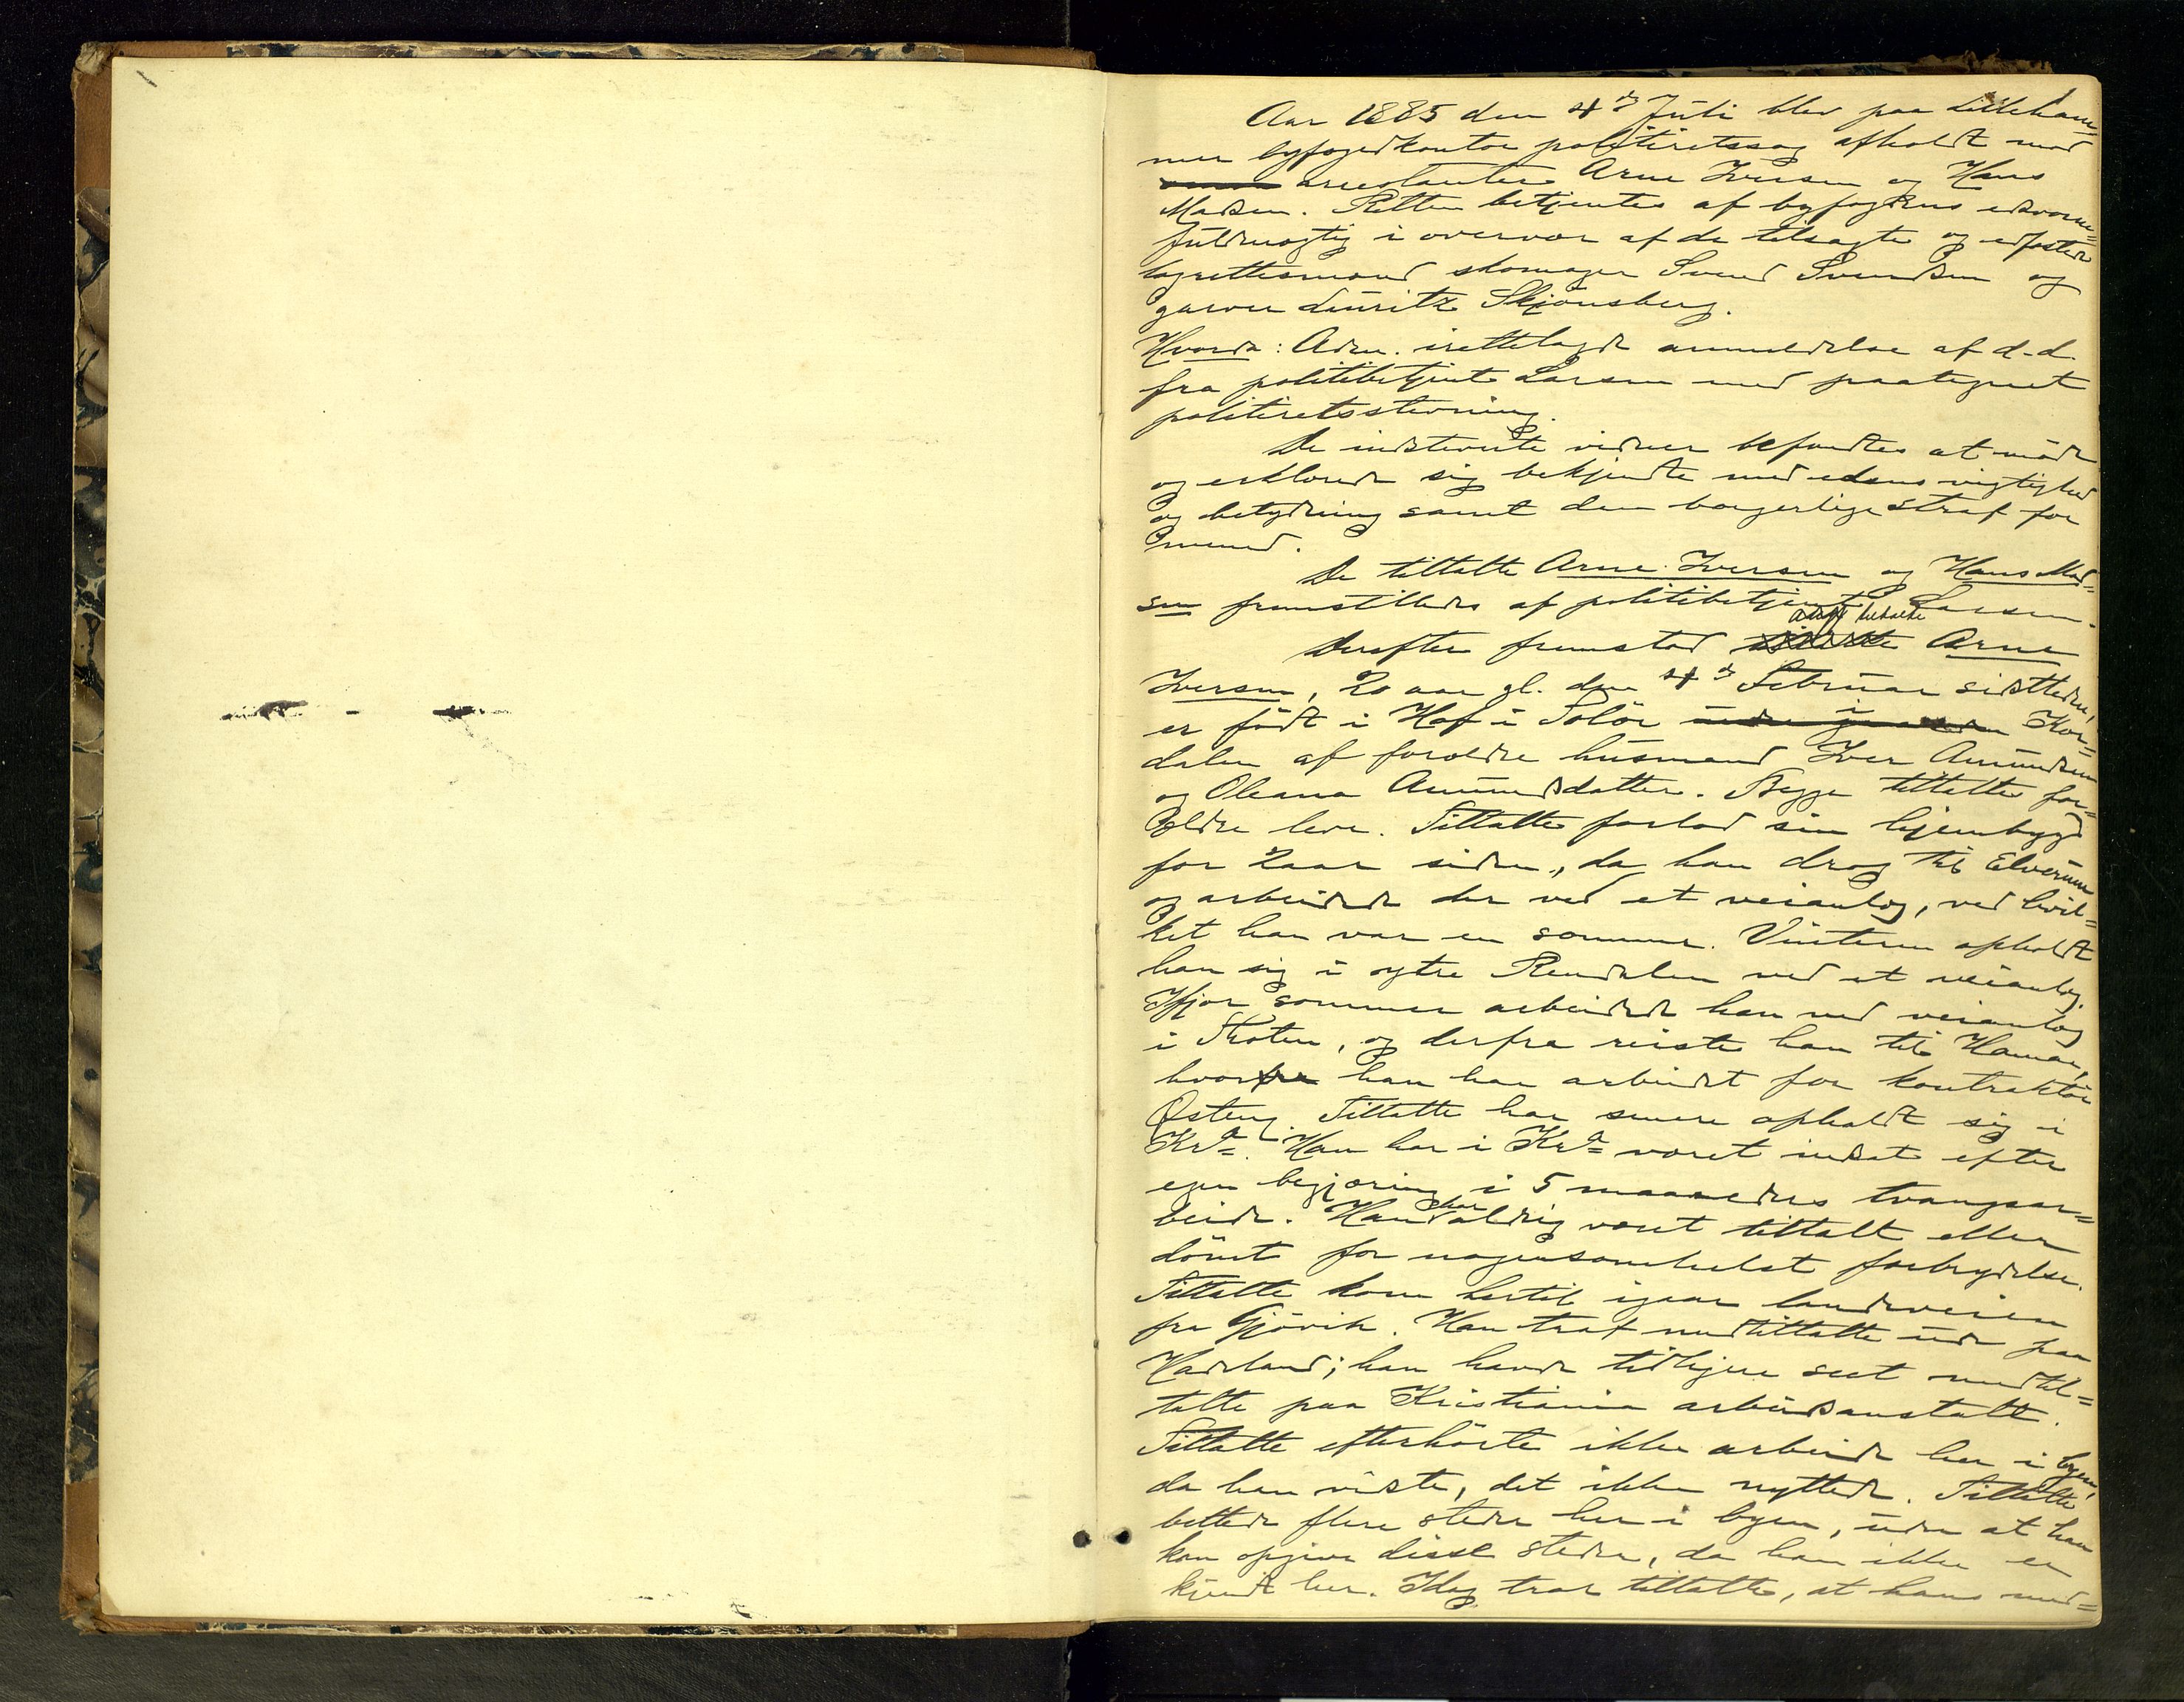 Aar 1885 den 4de Juli blev paa Lilleham-
mer byfogedkontor politiretssag afholdt mod
arrestanterne Arne Iversen og Hans
Madsen. Retten betjentes af byfogdens edsvorne
fuldmægtig i overvær af de tilsagte og edfæstede
lagrettesmænd skomager Svend Svendsen og
garver Lauritz Skjønsberg.
Hvorda: Adm. irettelagde anmeldelse af d.d.
fra politibetjent Larsen med paategnet
politiretsstevning.
De indstevnte vidner befandtes at møde
og erklærede sig bekjendte med edens vigtighed
og betydning samt den borgerlige straf for
mened.
De tiltalte Arne Iversen og Hans Mad-
sen fremstilledes af politibetjent Larsen.
Derefter fremstod tiltalte Arne
Iversen, 20 aar gl. den 4de Februar sidstleden,
er født i Hof i Solør Kor-
dalen af forældre husmand Iver Amundsen
og Oleana Amundsdatter. Begge tiltaltes for-
ældre lever. Tiltalte forlod sin hjembygd
for 2 aar siden, da han drog til Elverum
og arbeidede der ved et veianlæg, ved hvil-
ket han var en sommer. Vinteren opholdt
han sig i ytre Rendalen ved et veianlæg.
Ifjor sommer arbeidede han ved veianlæg
i Thoten, og derfra reiste han til Hamar,
hvor han har arbeidet for kontraktør
Østeng. Tiltalte har senere opholdt sig i
Kra. Han har i Kra været indsat efter
egen begjæring i 5 maaneders tvangsar-
beide. Han har aldrig været tiltalt eller
dømt for nogensomhelst forbrydelse.
Tiltalte kom hertil igaar landeveien
fra Gjøvik. Han traf medtiltalte ude paa
Hadeland; han havde tidligere seet medtil-
talte paa Kristiania arbeidsanstalt.
Tiltalte efterhørte ikke arbeide her i byen,
da han vidste, det ikke nyttede. Tiltalte
bettede flere steder her i byen, uden at han
kan opgive disse steder, da han ikke er
kjendt her. Idag traf tiltalte, at hans med-